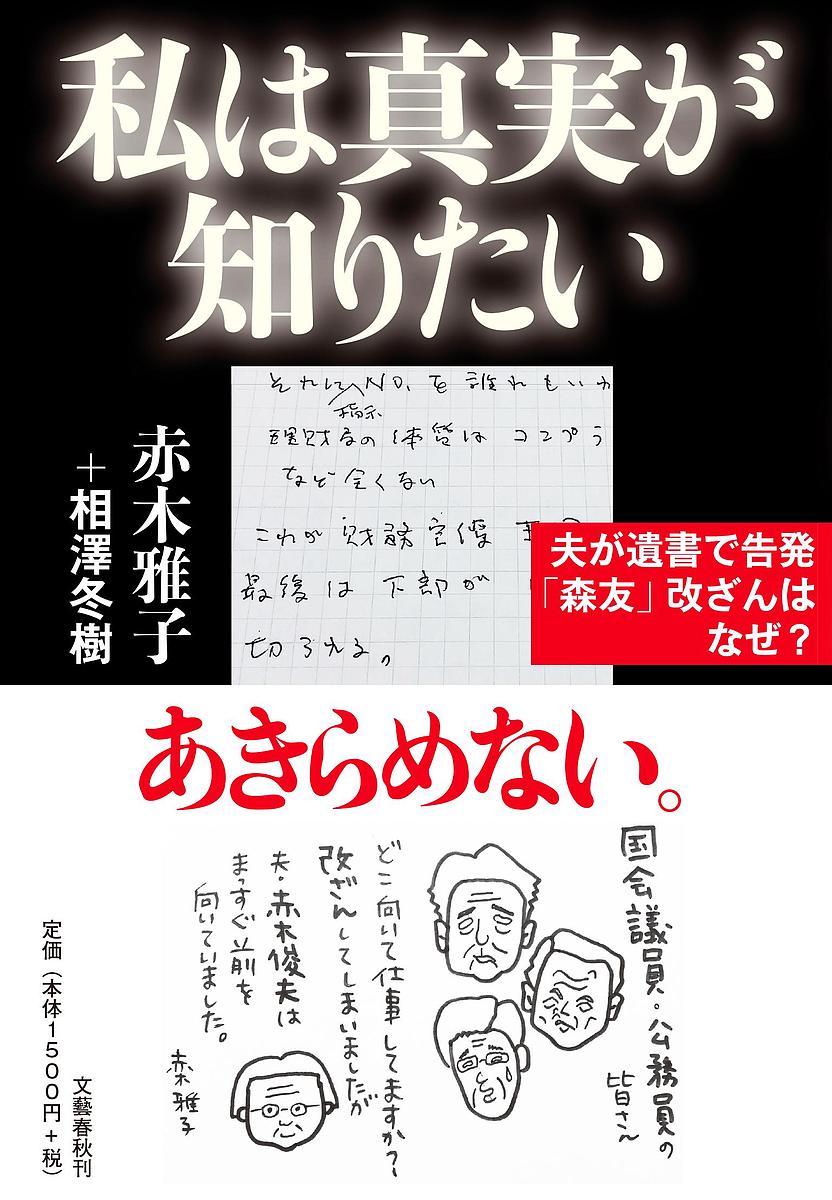 私は真実が
知りたい
赤木雅子
＋相澤冬樹
それにNO,を誰れもいわ
指示
理財局の体質はコンプラ
など全くない
これが財務官僚
最後は下部が
切られる。
夫が遺書で告発
「森友」改ざんは
なぜ？
あきらめない。
国会議員・公務員の
皆さん
どこ向いて仕事してますか？
改ざんしてしまいましたが
夫・赤木俊夫は
まっすぐ前を
向いていました。
赤木雅子
定価（本体1500円＋税）
文藝春秋刊